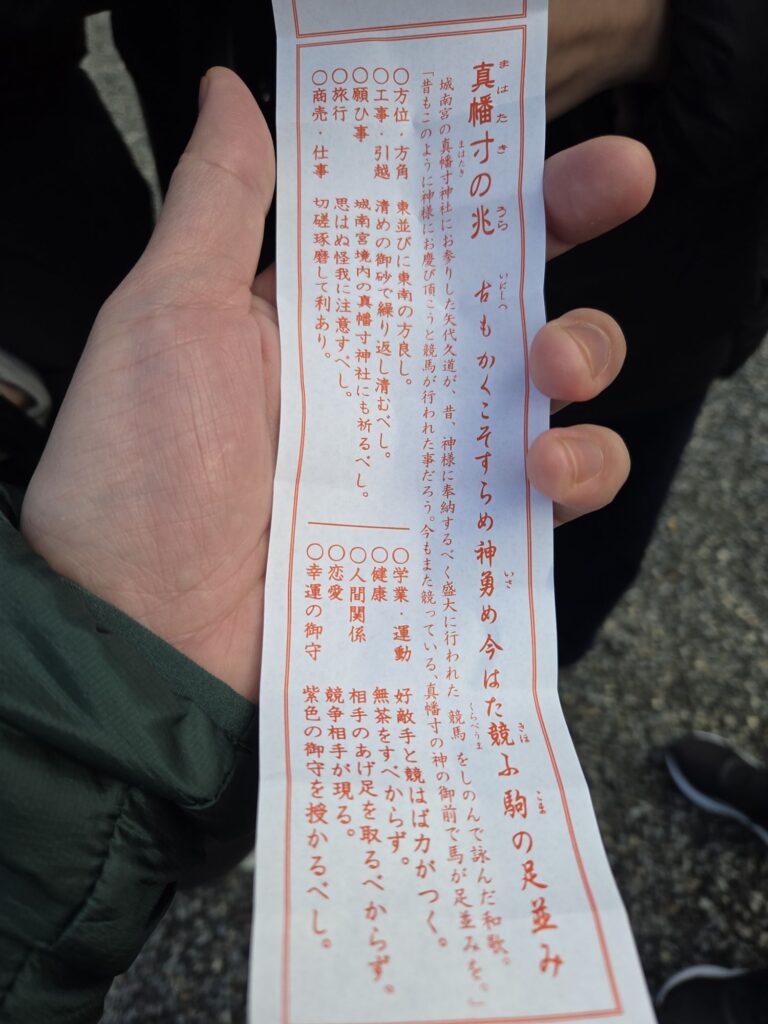 真幡寸の兆 古もかくこそすらめ神勇め今はた競ふ駒の足並み
まはたき
うら
いにしへ
いさ
きほ
こま
城南宮の真幡寸神社にお参りした矢代久道が、昔、神様に奉納するべく盛大に行われた競馬をしのんで詠んだ和歌。
まはたき
くらべうま
「昔もこのように神様にお慶び頂こうと競馬が行われた事だろう。今もまた競っている、真幡寸の神の御前で馬が足並みを。」
〇方位・方角 東並びに東南の方良し。
〇工事・引越 清めの御砂で繰り返し清むべし。
〇願ひ事 城南宮境内の真幡寸神社にも祈るべし。
〇旅行 思はぬ怪我に注意すべし。
〇商売・仕事 切磋琢磨して利あり。
〇学業・運動 好敵手と競はば力がつく。
〇健康 無茶をすべからず。
〇人間関係 相手のあげ足を取るべからず。
〇恋愛 競争相手が現る。
〇幸運の御守 紫色の御守を授かるべし。